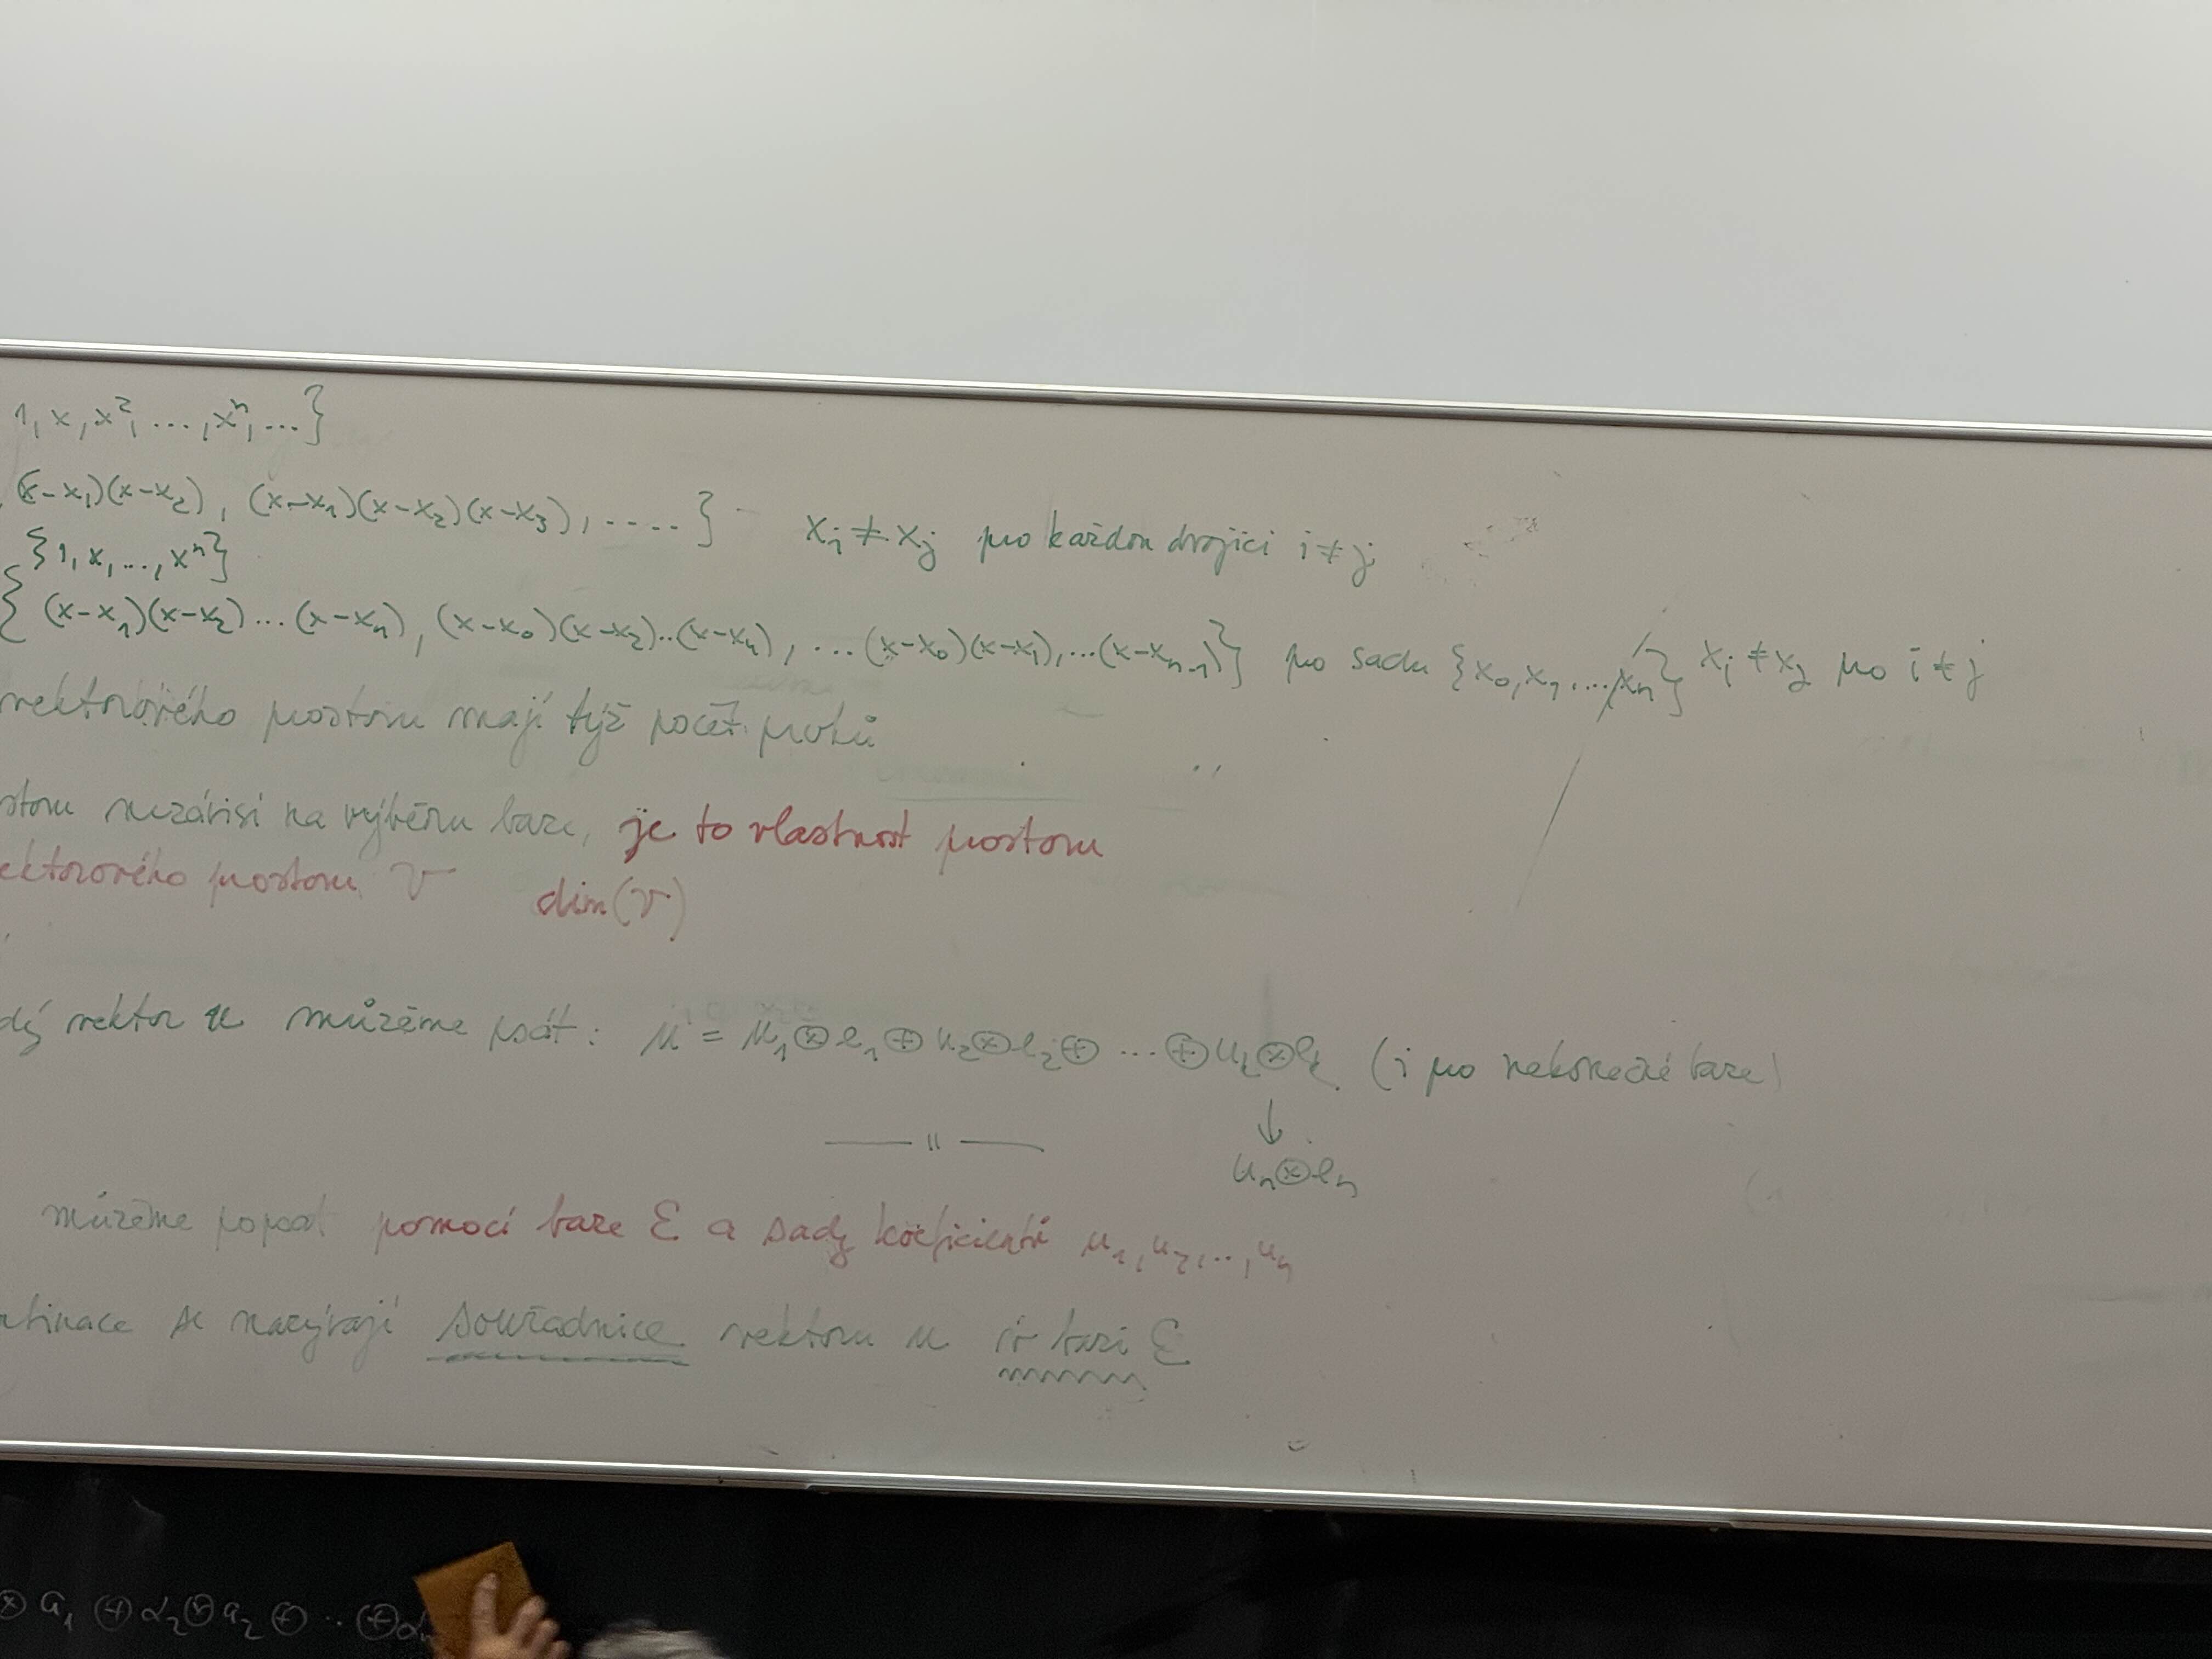 1, x, x², ..., xⁿ, ...}
(x-x₁)(x-x₂), (x-x₁)(x-x₂)(x-x₃), ....} xᵢ ≠ xⱼ pro každou dvojici i ≠ j
{1, x, ..., xⁿ}
{(x-x₁)(x-x₂)...(x-xₙ), (x-x₀)(x-x₂)..(x-xₙ), ...(x-x₀)(x-x₁),...(x-xₙ₋₁)} pro sadu {x₀, x₁, ..., xₙ} xᵢ ≠ xⱼ pro i ≠ j
vektorového prostoru mají týž počet prvků
storu nezávisí na výběru baze, je to vlastnost prostoru
ektorového prostoru V dim(V)
dý vektor u můžeme psát: u = u₁⊗e₁⊕u₂⊗e₂⊕ ... ⊕ (i pro nekonečné baze)
↓
uₙ⊗eₙ
—— ıı ——
můžeme popsat pomocí baze ℰ a sady koeficientů u₁, u₂, .., uₙ
binace se nazývají souřadnice vektoru u v bazi ℰ
⊗ a₁ ⊕ α₂⊗a₂ ⊕ .. ⊕